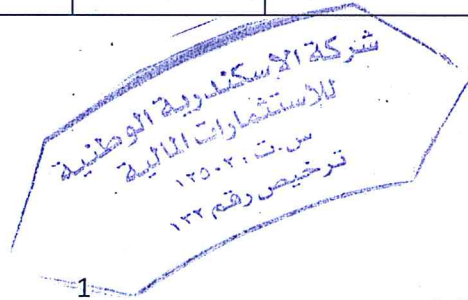 شركة الاسكندرية الوطنية
للاستثمارات المالية
س.ت: ١٢٥٠٢٠
ترخيص رقم ١٢٢
1